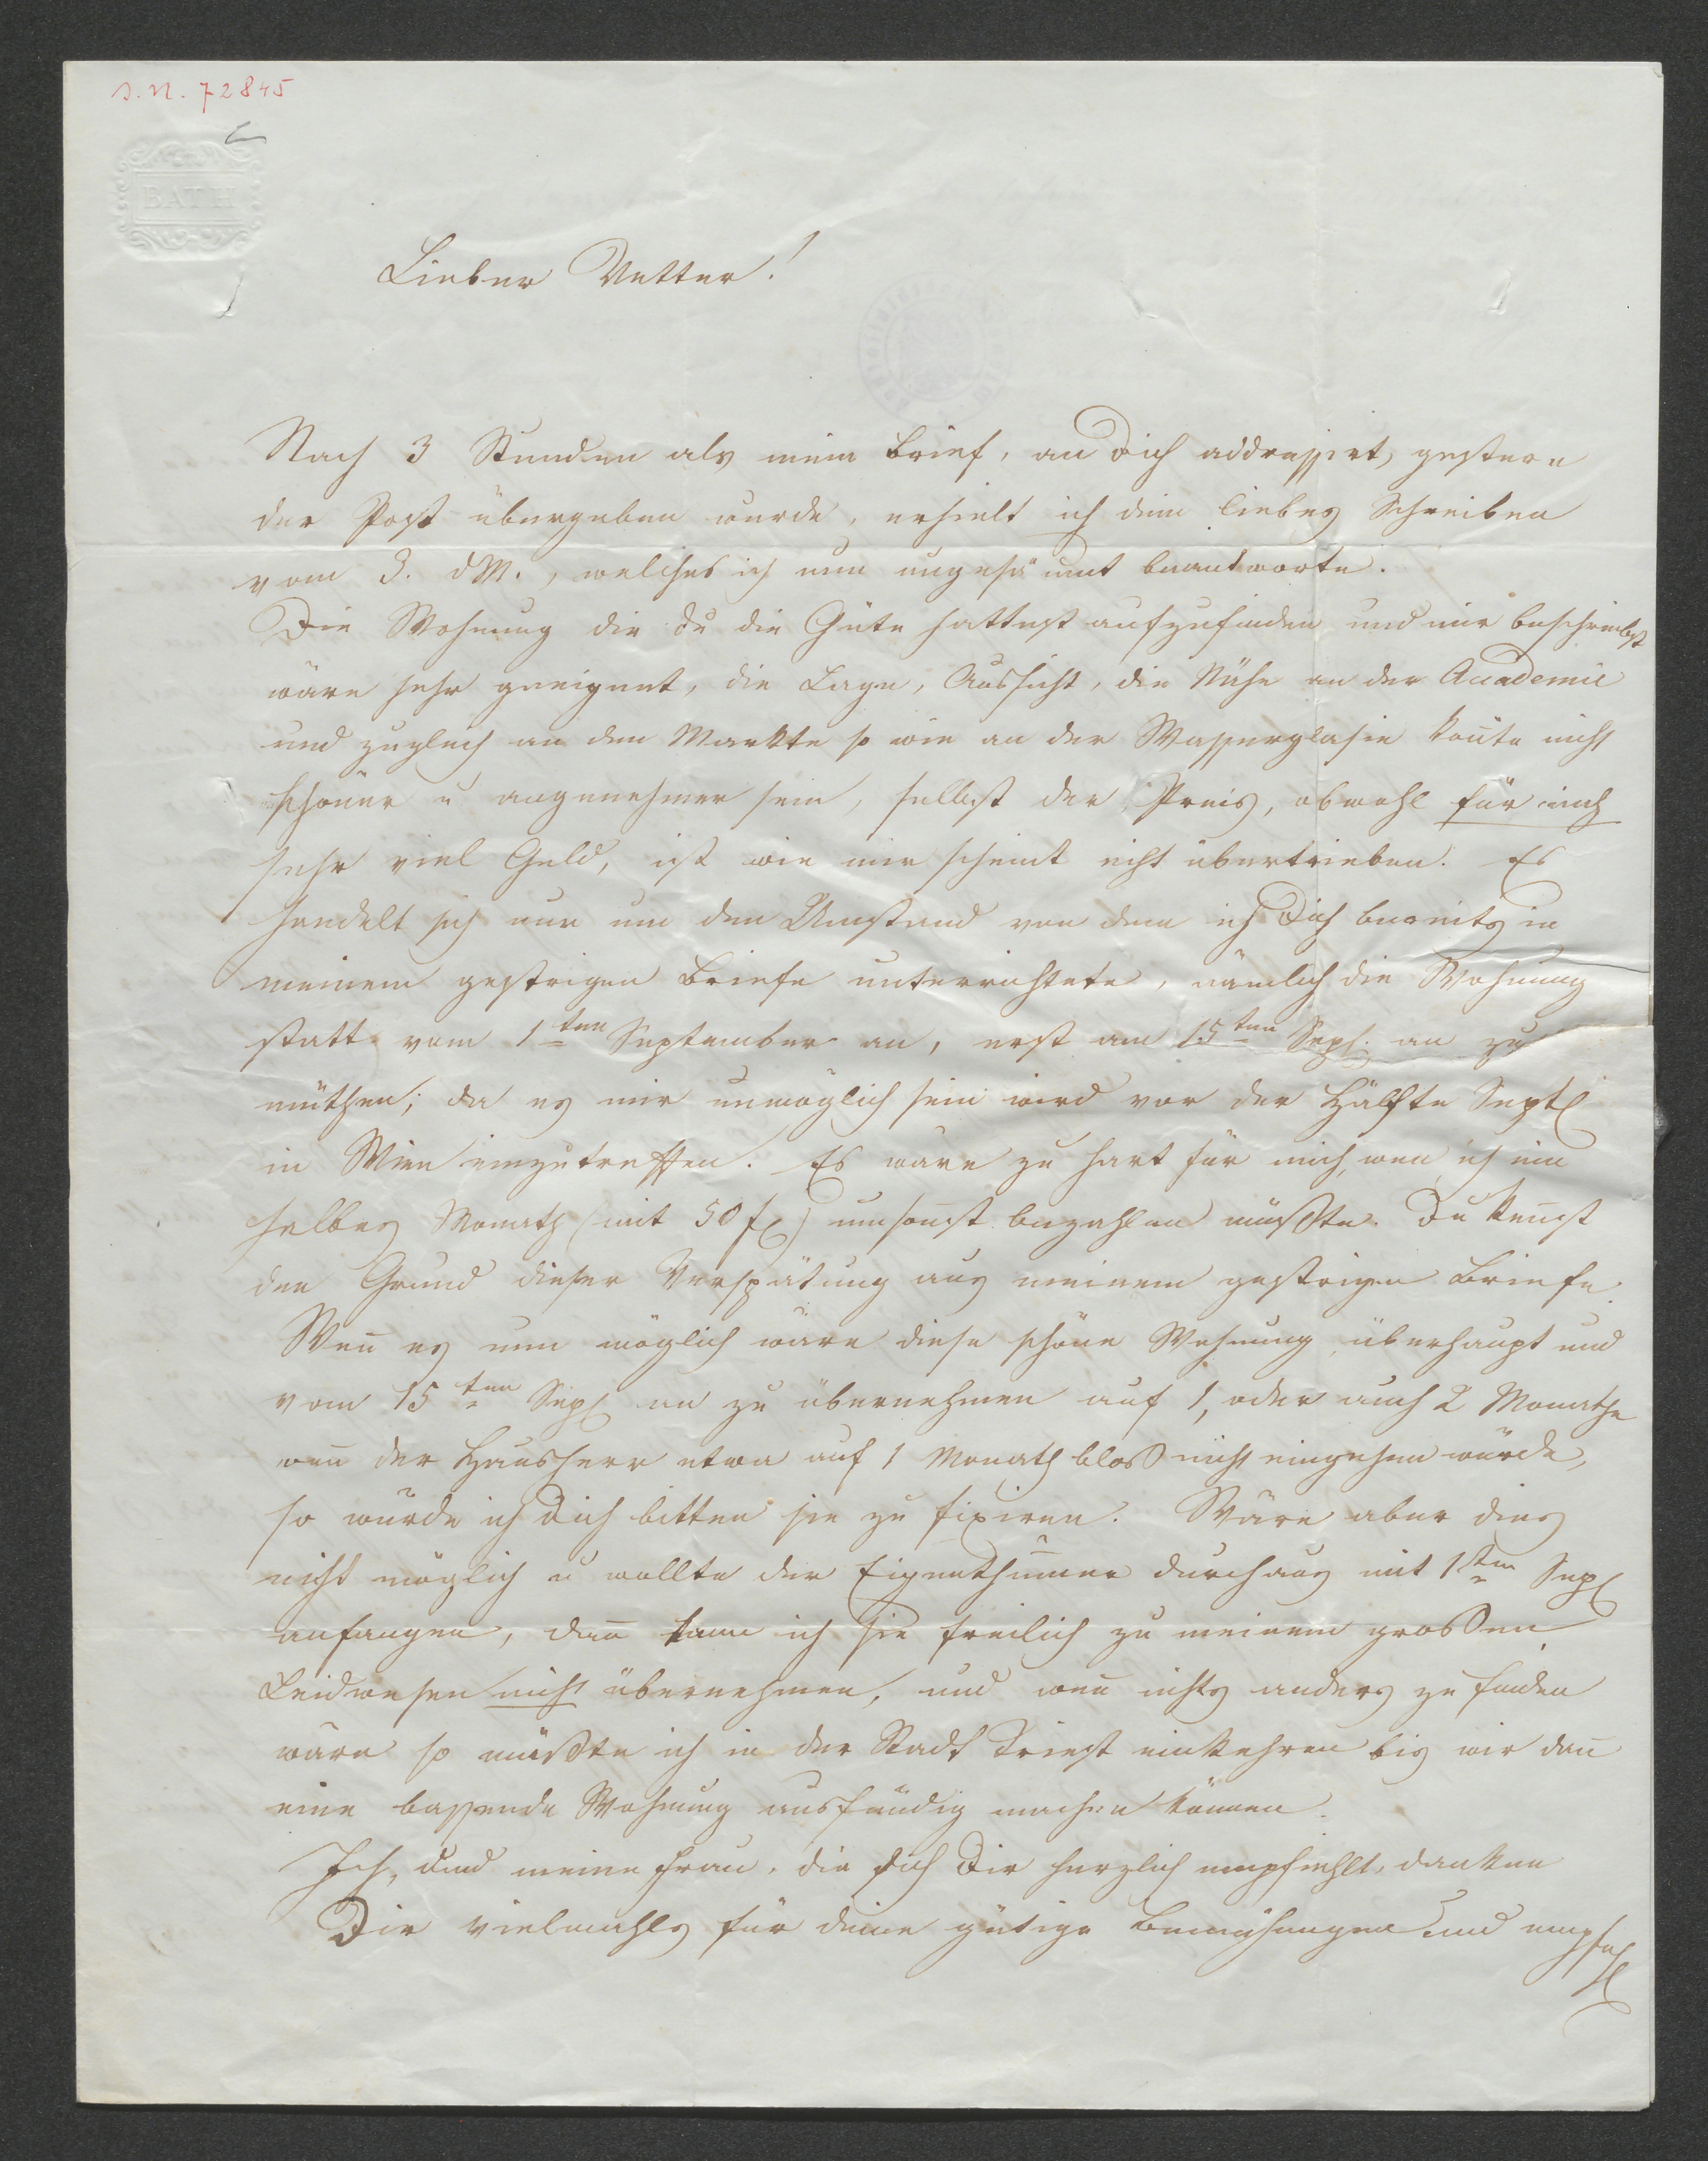 J.N. 72845
BATH
Lieber Vetter!
Nach 3 Stunden als mein Brief, an Dich addressirt, gestern
der Post übergeben wurde, erhielt ich dein liebes Schreiben
vom 3. dM., welches ich nun ungesäumt beantworte.
Die Wohnung die du die Güte hattest aufzufinden und mir beschreibst
wäre sehr geeignet, die Lage, Aussicht, die Nähe an der Academie
und zugleich an dem Markte so wie an der Wasserglasie kön̄te nicht
schöner u angenehmer sein, selbst der Preis, obwohl für mich
sehr viel Geld, ist wie mir scheint nicht übertrieben. Es
handelt sich nur um den Umstand von dem ich Dich bereits in
meinem gestrigen Briefe unterrichtete, nämlich die Wohnung
statt vom 1ten September an, erst am 15ten Sept. an zu
miethen; da es mir unmöglich sein wird vor der Hälfte Sept
in Wien einzutreffen. Es wäre zu hart für mich, wen̄ ich ein
halbes Monath (mit 50 f) umson̄st bezahlen müßte. Du ken̄st
den Grund dieser Verspätung aus meinem gestrigen Briefe.
Wen̄ es nun möglich wäre diese schöne Wohnung überhaupt und
vom 15ten Sept an zu übernehmen auf 1, oder auch 2 Monathe
wen̄ der Hausherr etwa auf 1 Monath bloß nicht eingehen würde,
so würde ich Dich bitten sie zu fixiren. Wäre aber dies
nicht möglich u wollte der Eigenthümer durchaus mit 1ten Sept
anfangen, dan̄ kann ich sie freilich zu meinem großen
Leidwesen nicht übernehmen, und wen̄ nichts anders zu finden
wäre so müßte ich in der Stadt Triest einkehren bis wir dan̄
eine bassende Wohnung ausfündig machen können.
Ich, und meine Frau, die sich Dir herzlich empfiehlt, danken
Dir vielmahls für deine gütige Bemühungen und empfehl